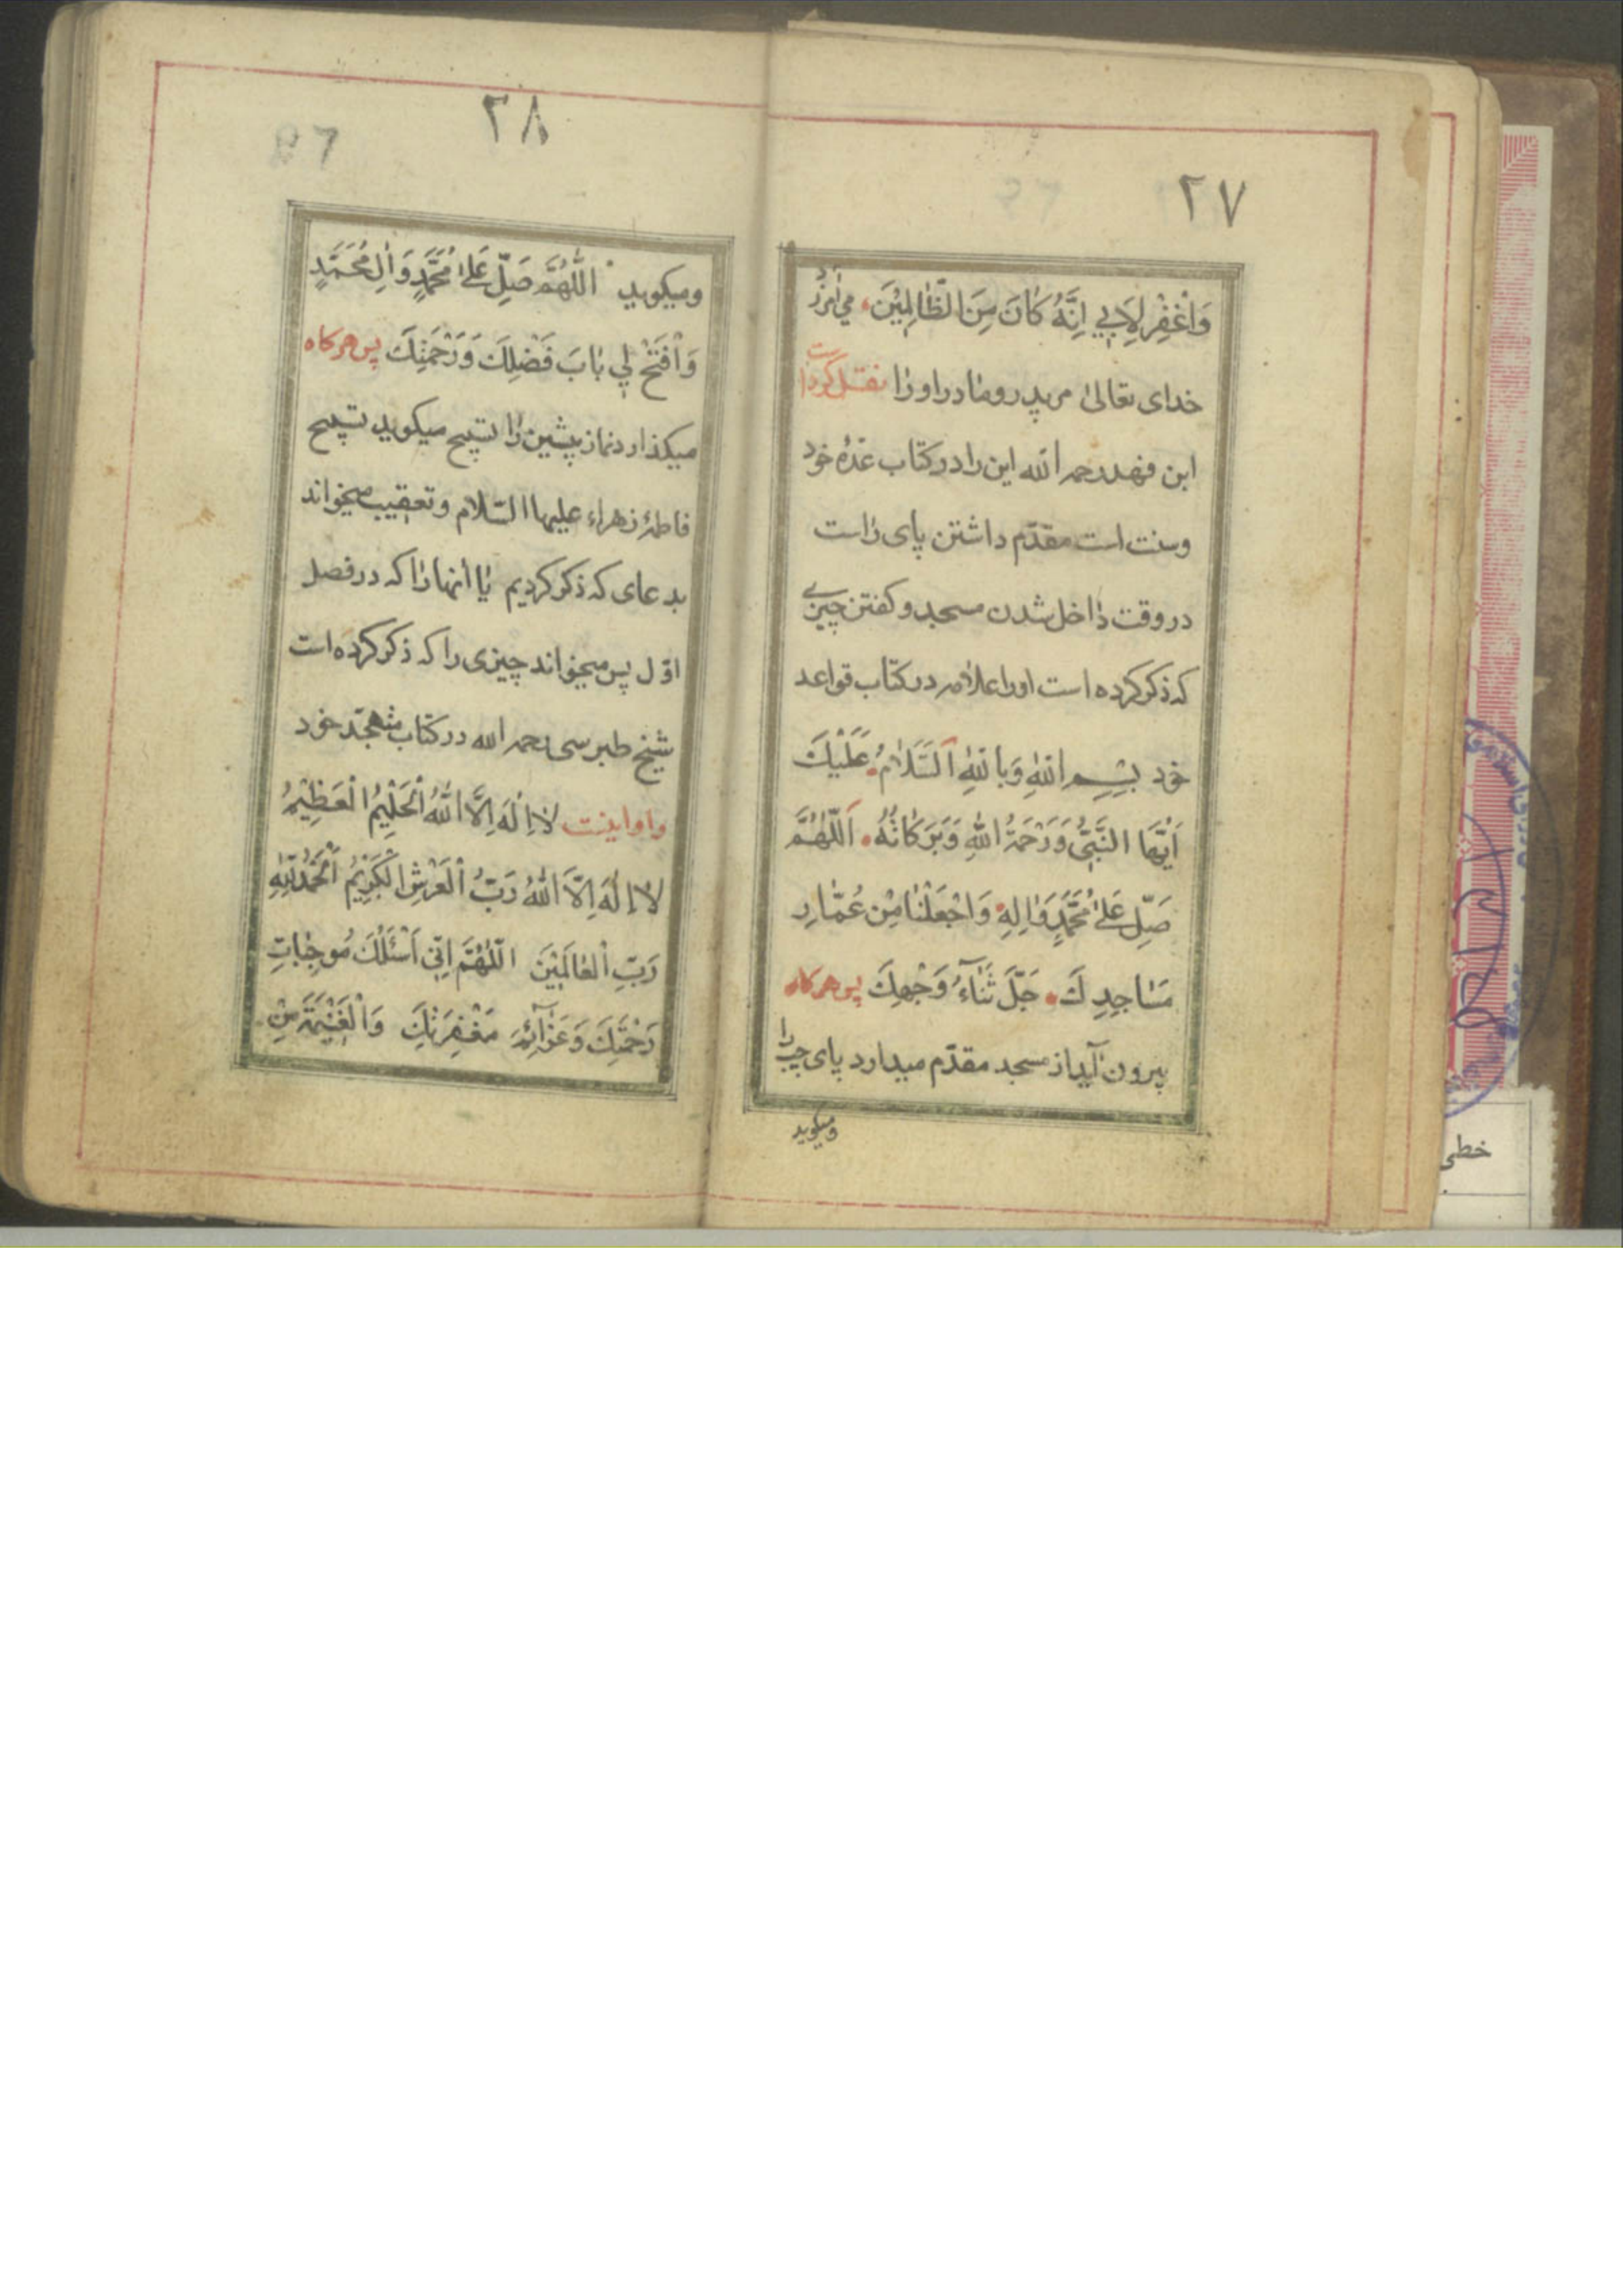 ٢٧
وَاْغْفِرْ لِاَبِي اِنَّهُ كٰانَ مِنَ الظّٰالِمِيْنَ، مي‌آمرزد
خداى تعالىٰ مر پدر ومٰادر او رٰا نقل كرده است
ابن فهد رحمه الله اين را در كتاب عدهٔ خود
وسنت است مقدّم داشتن پاى رٰاست
در وقت دٰاخل شدن مسجد و كفتن چيزي
كه ذكر كرده است اورا علامه در كتاب قواعد
خود بِسْمِ اللهِ وَبِاللهِ اَلسَّلَامُ عَلَيْكَ
اَيُّهَا النَّبِيُّ وَرَحْمَةُ اللهِ وَبَرَكَاتُهُ. اَللّٰهُمَّ
صَلِّ عَلىٰ مُحَمَّدٍ وَاٰلِهِ وَاجْعَلْنٰا مِنْ عُمّٰارِ
مَسٰاجِدِكَ. جَلَّ ثَنٰآءُ وَجْهِكَ پس هر كاه
بيرون آيد از مسجد مقدّم ميدارد پاى چپ را
وميكويد
٢٨
وميكويد اللّٰهُمَّ صَلِّ عَلىٰ مُحَمَّدٍ وَاٰلِ مُحَمَّدٍ
وَاْفْتَحْ لي بٰابَ فَضْلِكَ وَرَحْمَتِكَ پس هر كاه
ميكذارد نماز پيشين رٰا تسبيح ميكويد تسبيح
فاطمهٔ زهراء عليها السّلام وتعقيب ميخواند
بدعاى كه ذكر كرديم يٰا آنها رٰا كه در فصل
اوّل پس ميخواند چيزى را كه ذكر كرده است
شيخ طبرسى رحمه الله در كتاب متهجّد خود
واو اينست لٰا اِلٰهَ اِلَّا اللّٰهُ اْلحَلِيْمُ الْعَظِيْمُ
لٰا اِلٰهَ اِلَّا اللّٰهُ رَبُّ اْلعَرْشِ الْكَرِيْمُ اَلْحَمْدُ لِلّٰهِ
رَبِّ اْلعٰالَمِيْنَ اللّٰهُمَّ اِنّي اَسْئَلُكَ مُوجِبٰاتِ
رَحْمَتِكَ وَعَزٰآئِمَ مَغْفِرَتِكَ وَاْلغَنِيْمَةَ مِنْ
خطى